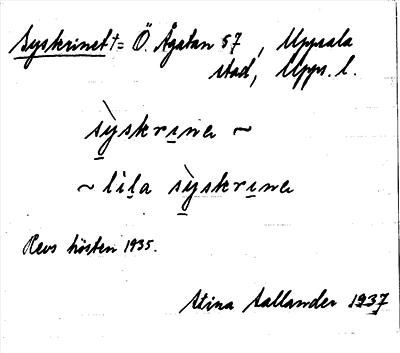 Syskrinet† = Ö. Ågatan 57, Uppsala
stad, Upps. l.
sỳskrinɐ ~
~ lila sỳskrinɐ
Revs hösten 1935.
Stina Sallander 1937